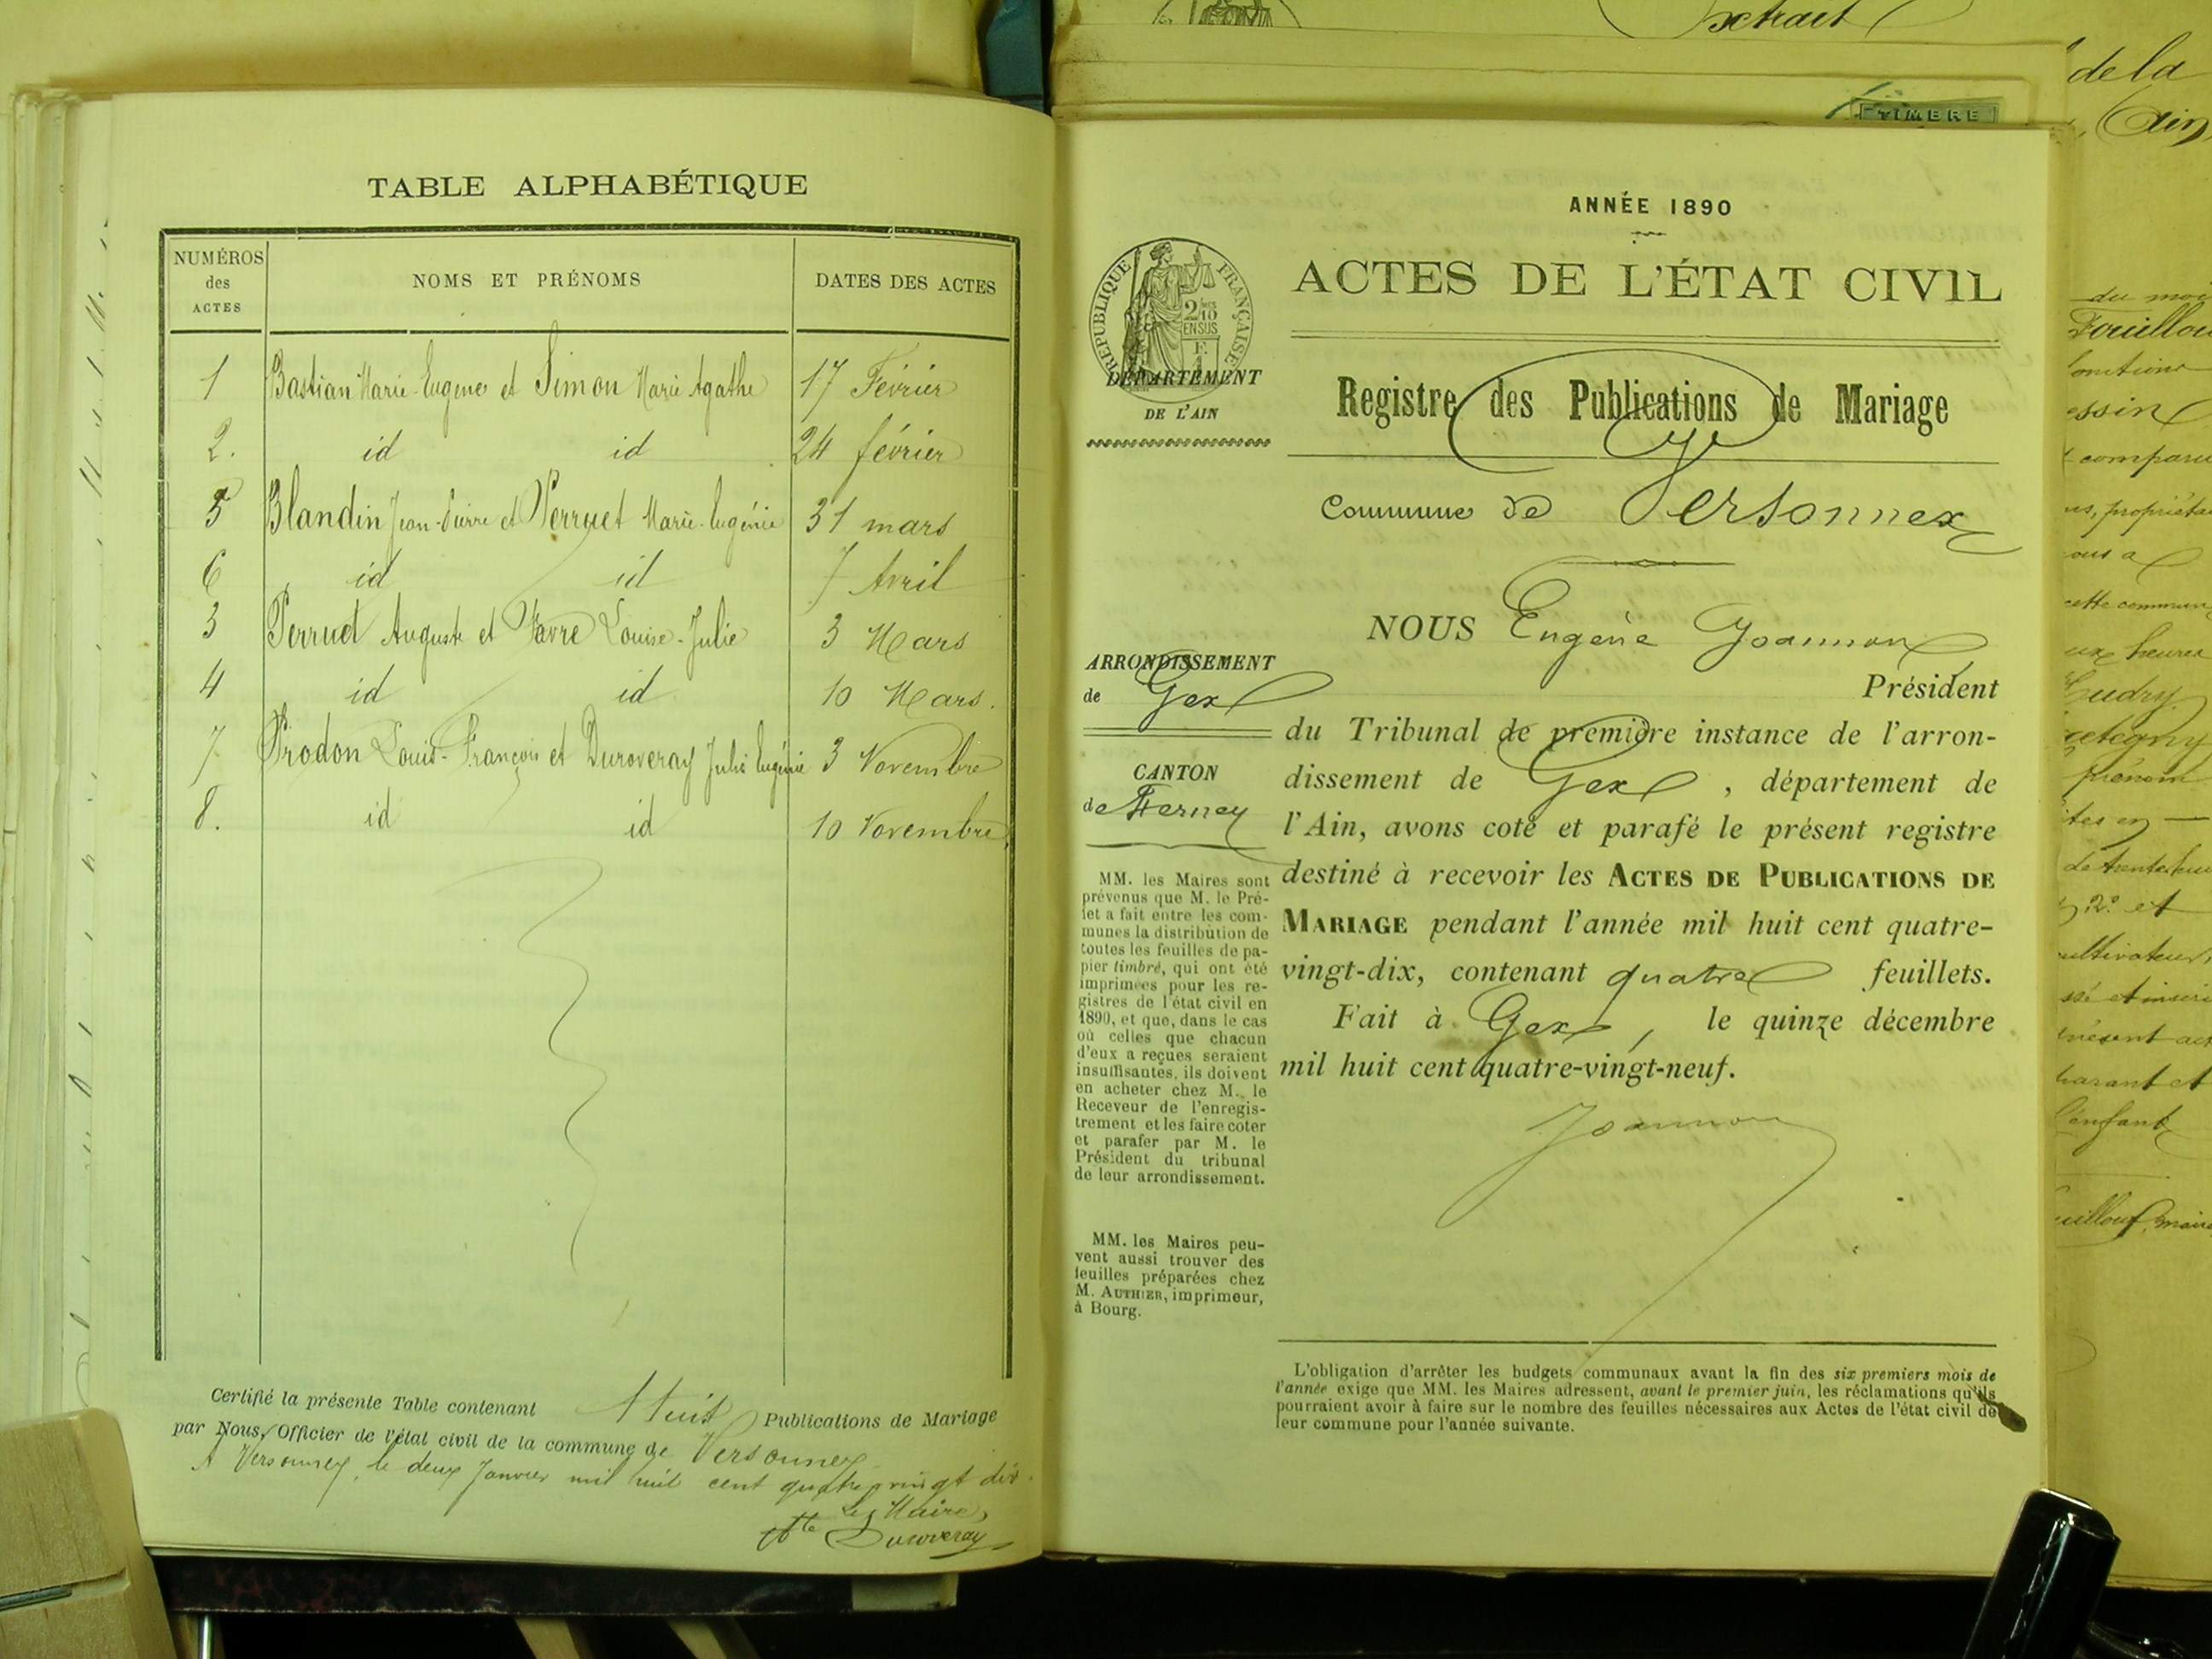 TABLE ALPHABÉTIQUE
NUMÉROS
des
ACTES
NOMS ET PRÉNOMS
DATES DES ACTES
1 Bastian Marie-Eugène et Simon Marie Agathe 17 Février
2. id id 24 février
5 Blandin Jean-Pierre et Perruet Marie-Eugénie 31 mars
6 id id 7 Avril
3 Perruet Auguste et Favre Louise-Julie 3 Mars
4 id id 10 Mars.
7. Prodon Louis-François et Duroveray Julie Eugénie 3 Novembre
8. id id 10 Novembre
Certifié la présente Table contenant Huit Publications de Mariage
par Nous, Officier de l'état civil de la commune de Versonnex
A Versonnex, le deux Janvier mil huit cent quatre vingt dix.
Le Maire,
Duroveray
ANNÉE 1890
ACTES DE L'ÉTAT CIVIL
RÉPUBLIQUE FRANÇAISE
2/10
EN SUS
F.
1
DÉPARTEMENT
DE L'AIN
Registre des Publications de Mariage
Commune de Versonnex
NOUS Eugène Joannon
Président
du Tribunal de première instance de l'arron-
dissement de Gex, département de
l'Ain, avons coté et parafé le présent registre
destiné à recevoir les ACTES DE PUBLICATIONS DE
MARIAGE pendant l'année mil huit cent quatre-
vingt-dix, contenant quatre feuillets.
Fait à Gex, le quinze décembre
mil huit cent quatre-vingt-neuf.
Joannon
ARRONDISSEMENT
de Gex
CANTON
de Ferney
MM. les Maires sont
prévenus que M. le Pré-
fet a fait entre les com-
munes la distribution de
toutes les feuilles de pa-
pier timbré, qui ont été
imprimées pour les re-
gistres de l'état civil en
1890, et que, dans le cas
où celles que chacun
d'eux a reçues seraient
insuffisantes, ils doivent
en acheter chez M. le
Receveur de l'enregis-
trement et les faire coter
et parafer par M. le
Président du tribunal
de leur arrondissement.
MM. les Maires peu-
vent aussi trouver des
feuilles préparées chez
M. AUTHIER, imprimeur,
à Bourg.
L'obligation d'arrêter les budgets communaux avant la fin des six premiers mois de
l'année exige que MM. les Maires adressent, avant le premier juin, les réclamations qu'ils
pourraient avoir à faire sur le nombre des feuilles nécessaires aux Actes de l'état civil de
leur commune pour l'année suivante.
extrait
TIMBRE
de la
Ain,
du mois
comparu
ous a
cette commun
heures
prénom
2° et
présent act
et
enfant
maire